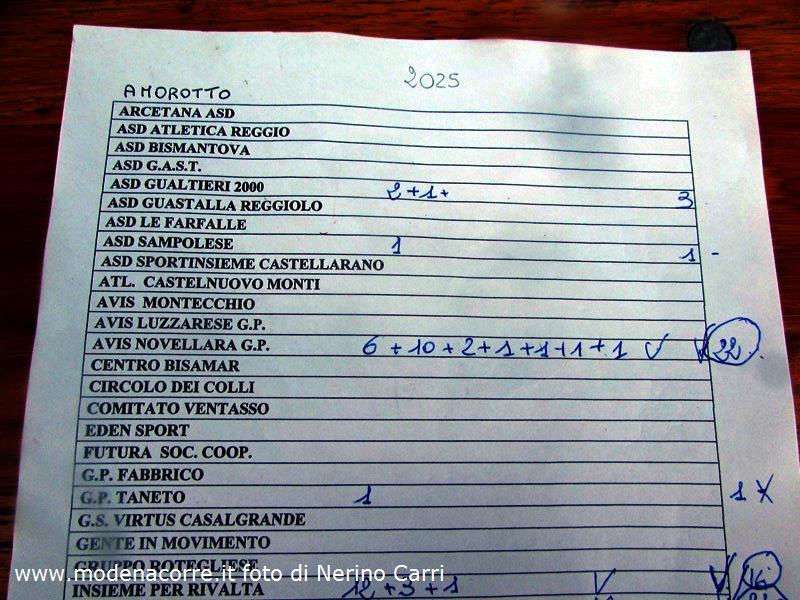 2025
AMOROTTO
ARCETANA ASD
ASD ATLETICA REGGIO
ASD BISMANTOVA
ASD G.A.S.T.
ASD GUALTIERI 2000 2+1+ 3
ASD GUASTALLA REGGIOLO
ASD LE FARFALLE
ASD SAMPOLESE 1 1 -
ASD SPORTINSIEME CASTELLARANO
ATL. CASTELNUOVO MONTI
AVIS MONTECCHIO
AVIS LUZZARESE G.P.
AVIS NOVELLARA G.P. 6+10+2+1+1+1+1 ✓ ✓ 22
CENTRO BISAMAR
CIRCOLO DEI COLLI
COMITATO VENTASSO
EDEN SPORT
FUTURA SOC. COOP.
G.P. FABBRICO
G.P. TANETO 1 1
G.S. VIRTUS CASALGRANDE
GENTE IN MOVIMENTO
GRUPPO ROTEGLIESE
www.modenacorre.it foto di Nerino Carri
INSIEME PER RIVALTA 12+3+1 ✓ ✓ 16